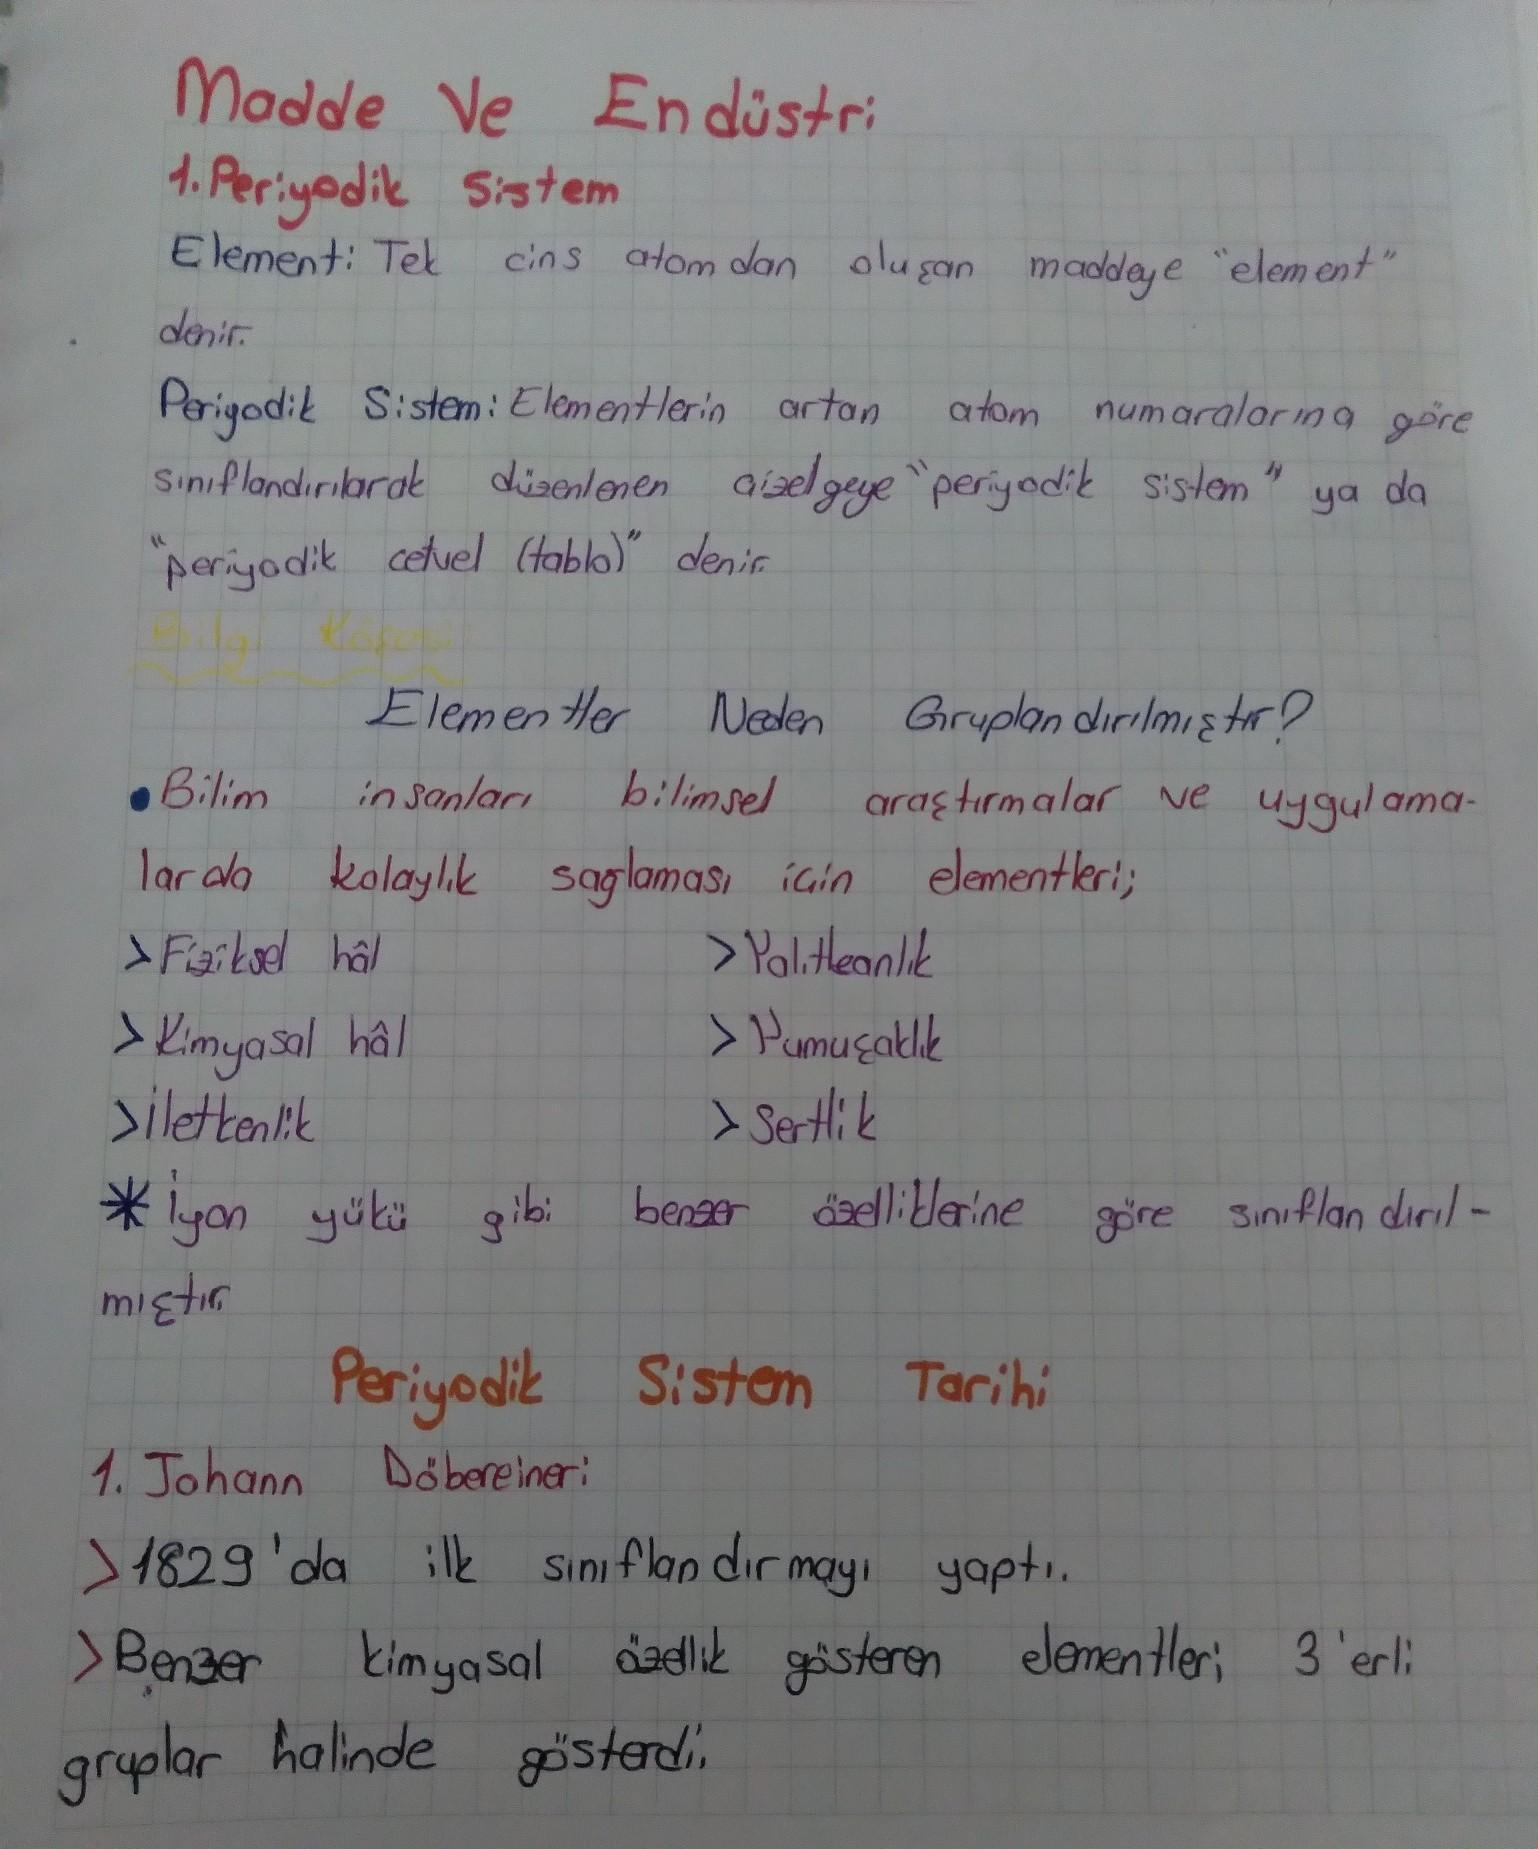 Madde Ve Endüstri
1. Periyodik Sistem
Element: Tek cins atomdan oluşan maddeye "element"
denir.
Periyodik Sistem: Elementlerin artan atom numaralarına göre
sınıflandırılarak düzenlenen çizelgeye "periyodik sistem" ya da
"periyodik cetvel (tablo)" denir.
Bilgi Köşesi
Elementler Neden Gruplandırılmıştır?
• Bilim insanları bilimsel araştırmalar ve uygulama-
larda kolaylık saglaması için elementleri;
> Fiziksel hâl > Yalıtkanlık
> Kimyasal hâl > Yumuşaklık
> İletkenlik > Sertlik
* İyon yükü gibi benzer özelliklerine göre sınıflandırıl-
mıştır.
Periyodik Sistem Tarihi
1. Johann Döbereiner:
> 1829'da ilk sınıflandırmayı yaptı.
> Benzer kimyasal özellik gösteren elementleri 3'erli
gruplar halinde gösterdi.